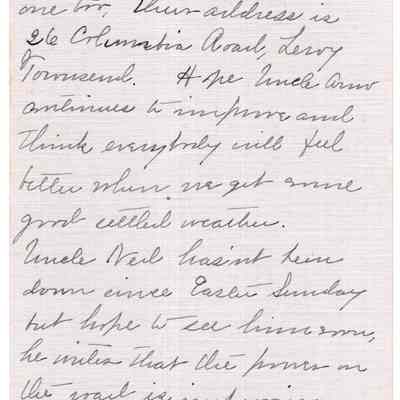 one too, their address is
26 Columbia Road, Leroy
Townsend. Hope Uncle
continues to improve and
think everybody will feel
better when we get some
good settled weather.
Uncle Neil hasn't been
down since Easter Sunday
but hope to see him soon,
he writes that the power on
the road is